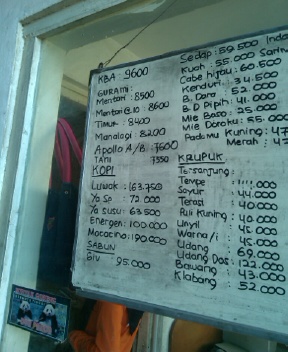 KBA : 9600
GURAMI :
Mentari : 8500
Mentari @10 : 8600
Timur : 8400
Manalagi : 8200
Apollo A/B : 7600
TANI 7350
KOPI
Luwak : 163.750
Ya So : 72.000
Ya susu : 63.500
Energen : 100.000
Mocacino : 190.000
SABUN
GIV : 95.000
Sedap : 59.500
Kuah : 55.000
Cabe hijau : 60.500
Kenduri : 34.500
B. Dara : 52.000
B.D Pipih : 41.000
Mie Baso : 25.000
Mie Doroku : 55.000
Padamu Kuning :
Merah :
KRUPUK
Tersanjung :
Tempe :
Sayur : 44.000
Terasi : 40.000
Poli Kuning : 40.000
Unyil : 45.000
Warna/i : 45.000
Udang : 69.000
Udang Dos : 122.000
Bawang : 43.000
Klabang : 52.000